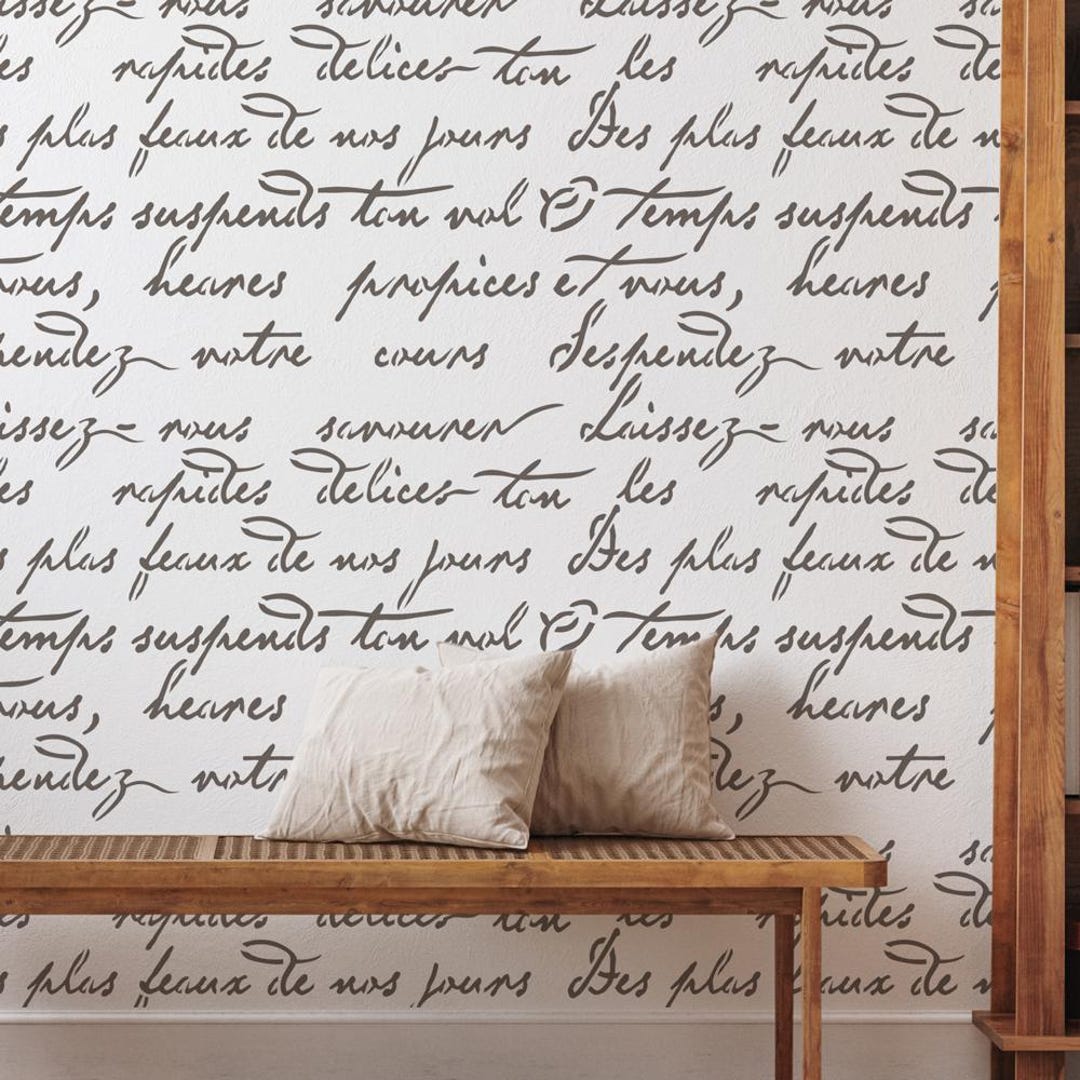 issez- nous savourer Laissez- nous sa
es rapides delices ton les rapides de
s plas feaux de nos jours Des plas feaux de n
Temps suspends ton vol O Temps suspends
vous, heares propices et vous, heares p
pendez votre cours Sespendez votre
issez- nous savourer Laissez- nous sa
es rapides delices ton les rapides de
s plas feaux de nos jours Des plas feaux de n
Temps suspends ton vol O Temps suspends
vous, heares s, heares p
pendez votr dez votre
sa
es rapides delices ton les rapides de
s plas feaux de nos jours Des plas eaux de n